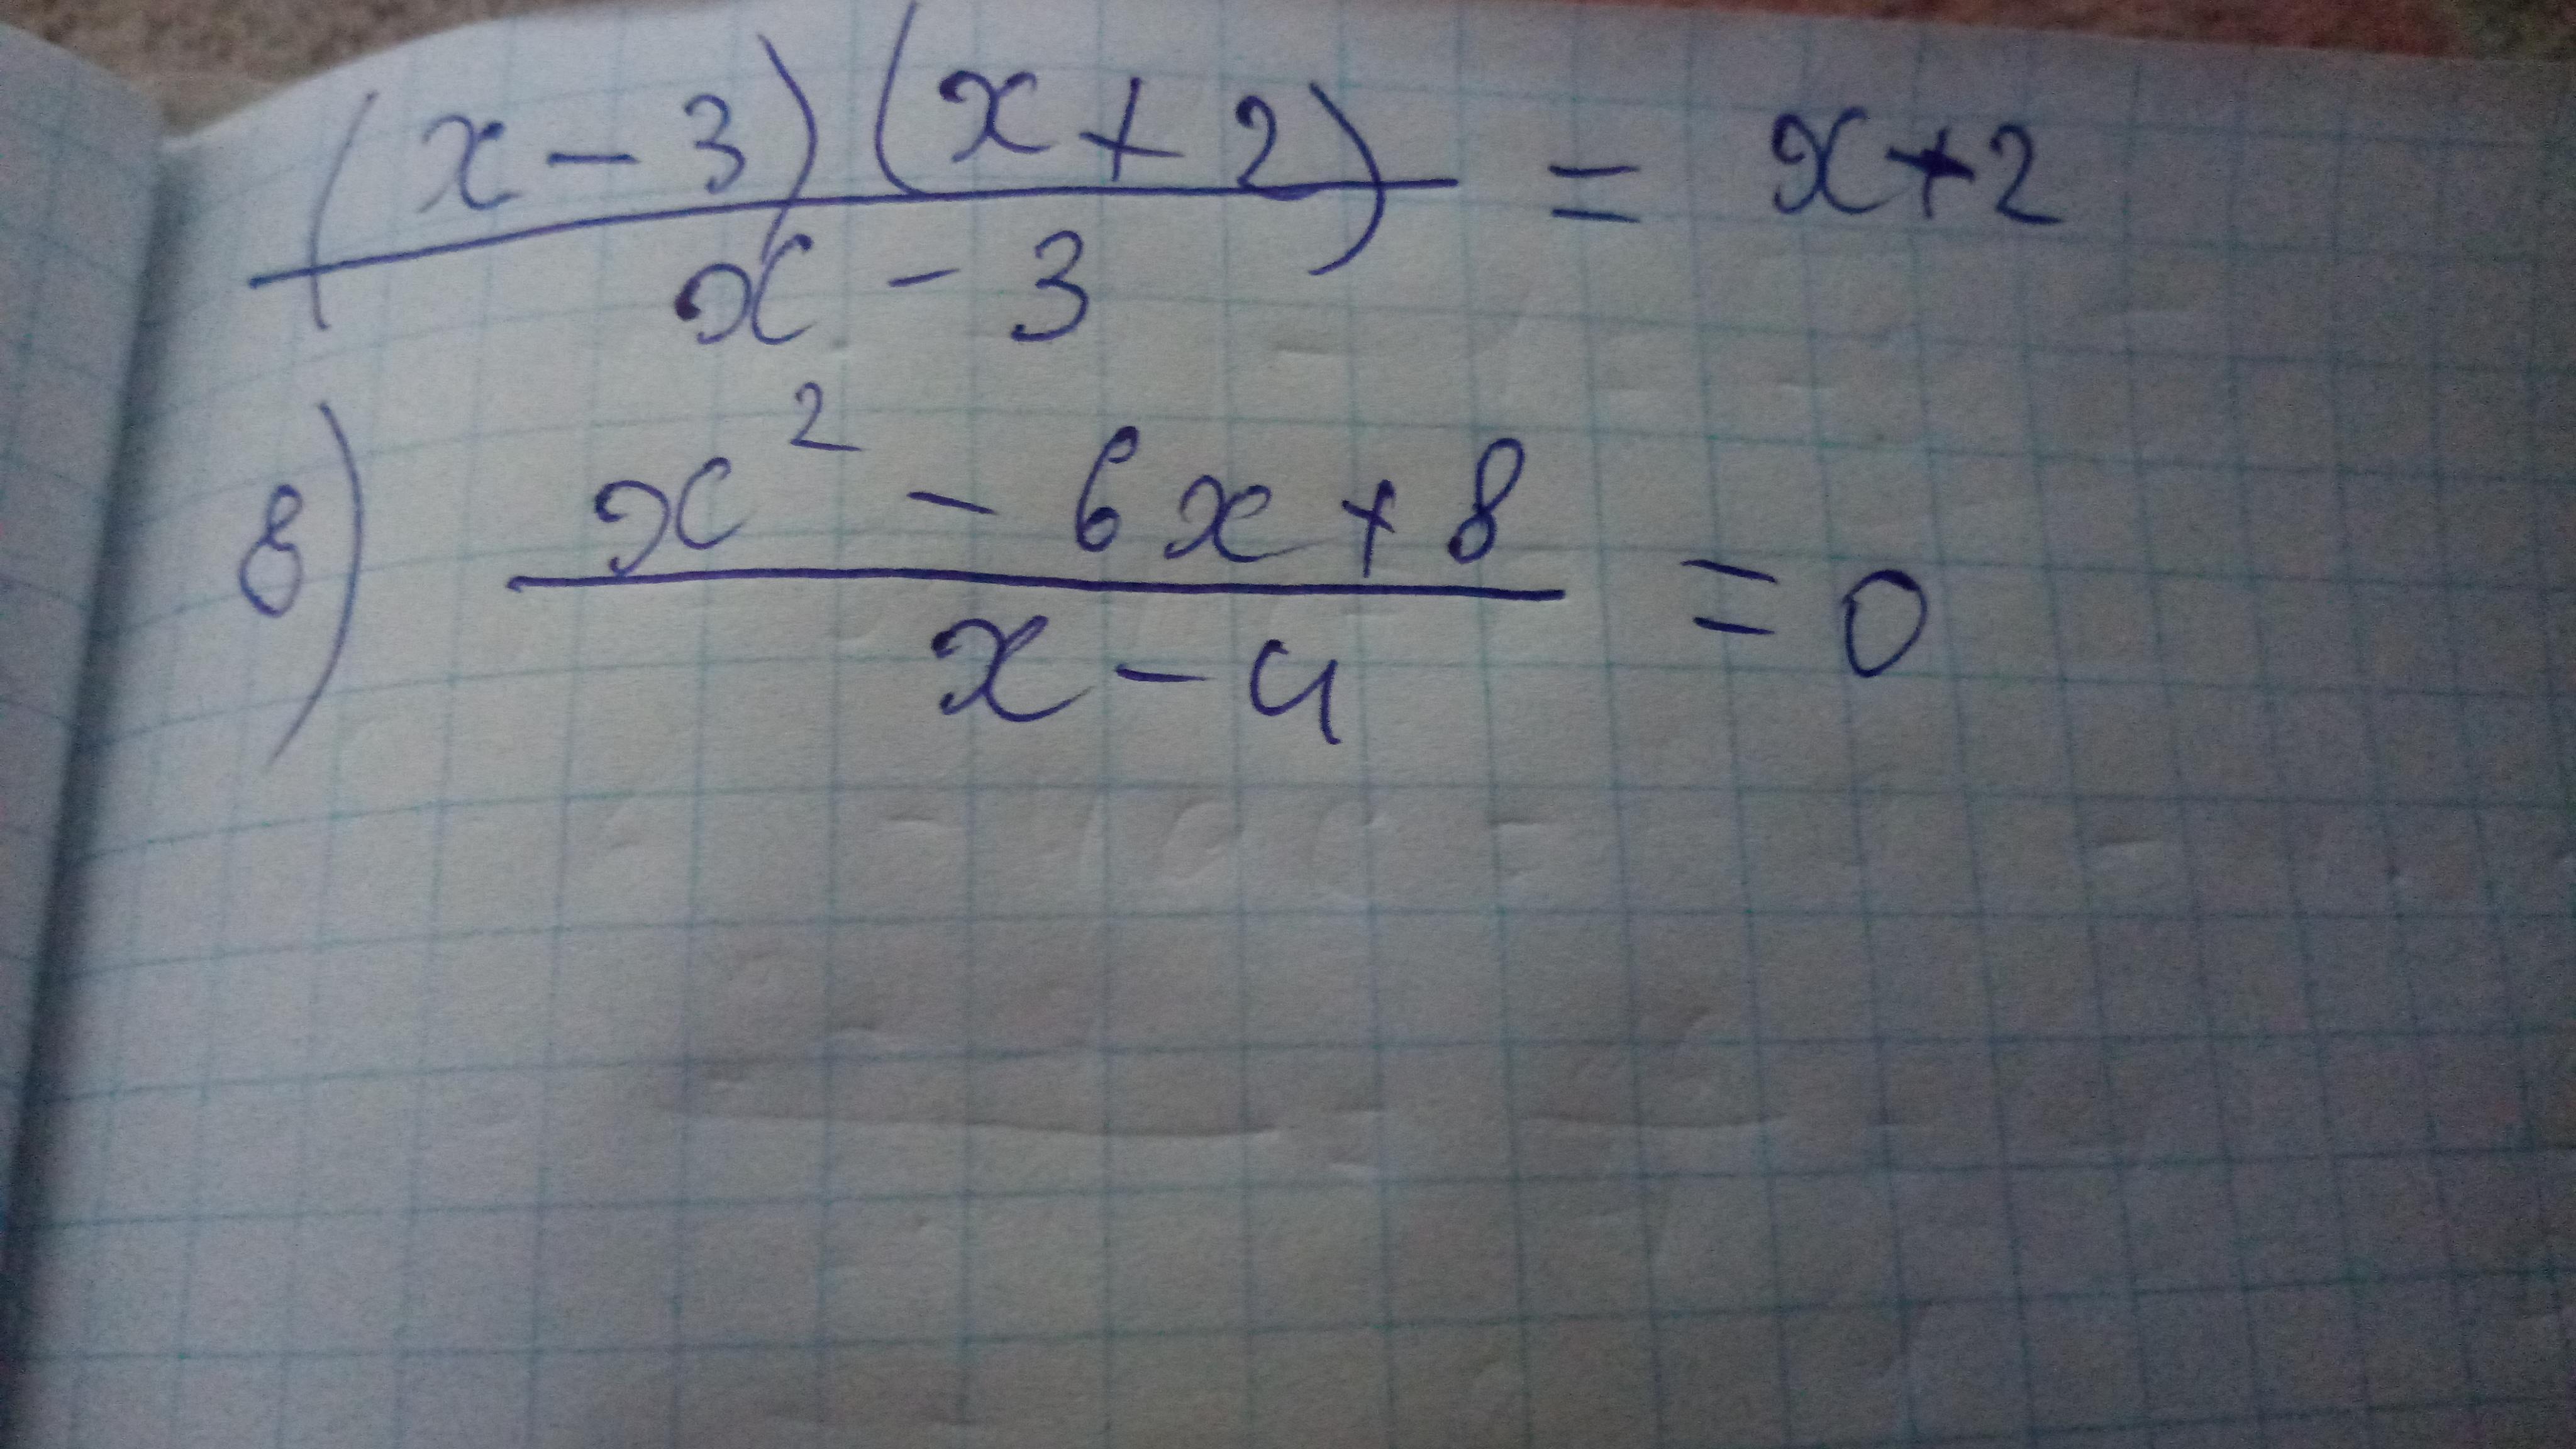 (x - 3)(x + 2) / x - 3 = x + 2
8) x² - 6x + 8 / x - 4 = 0